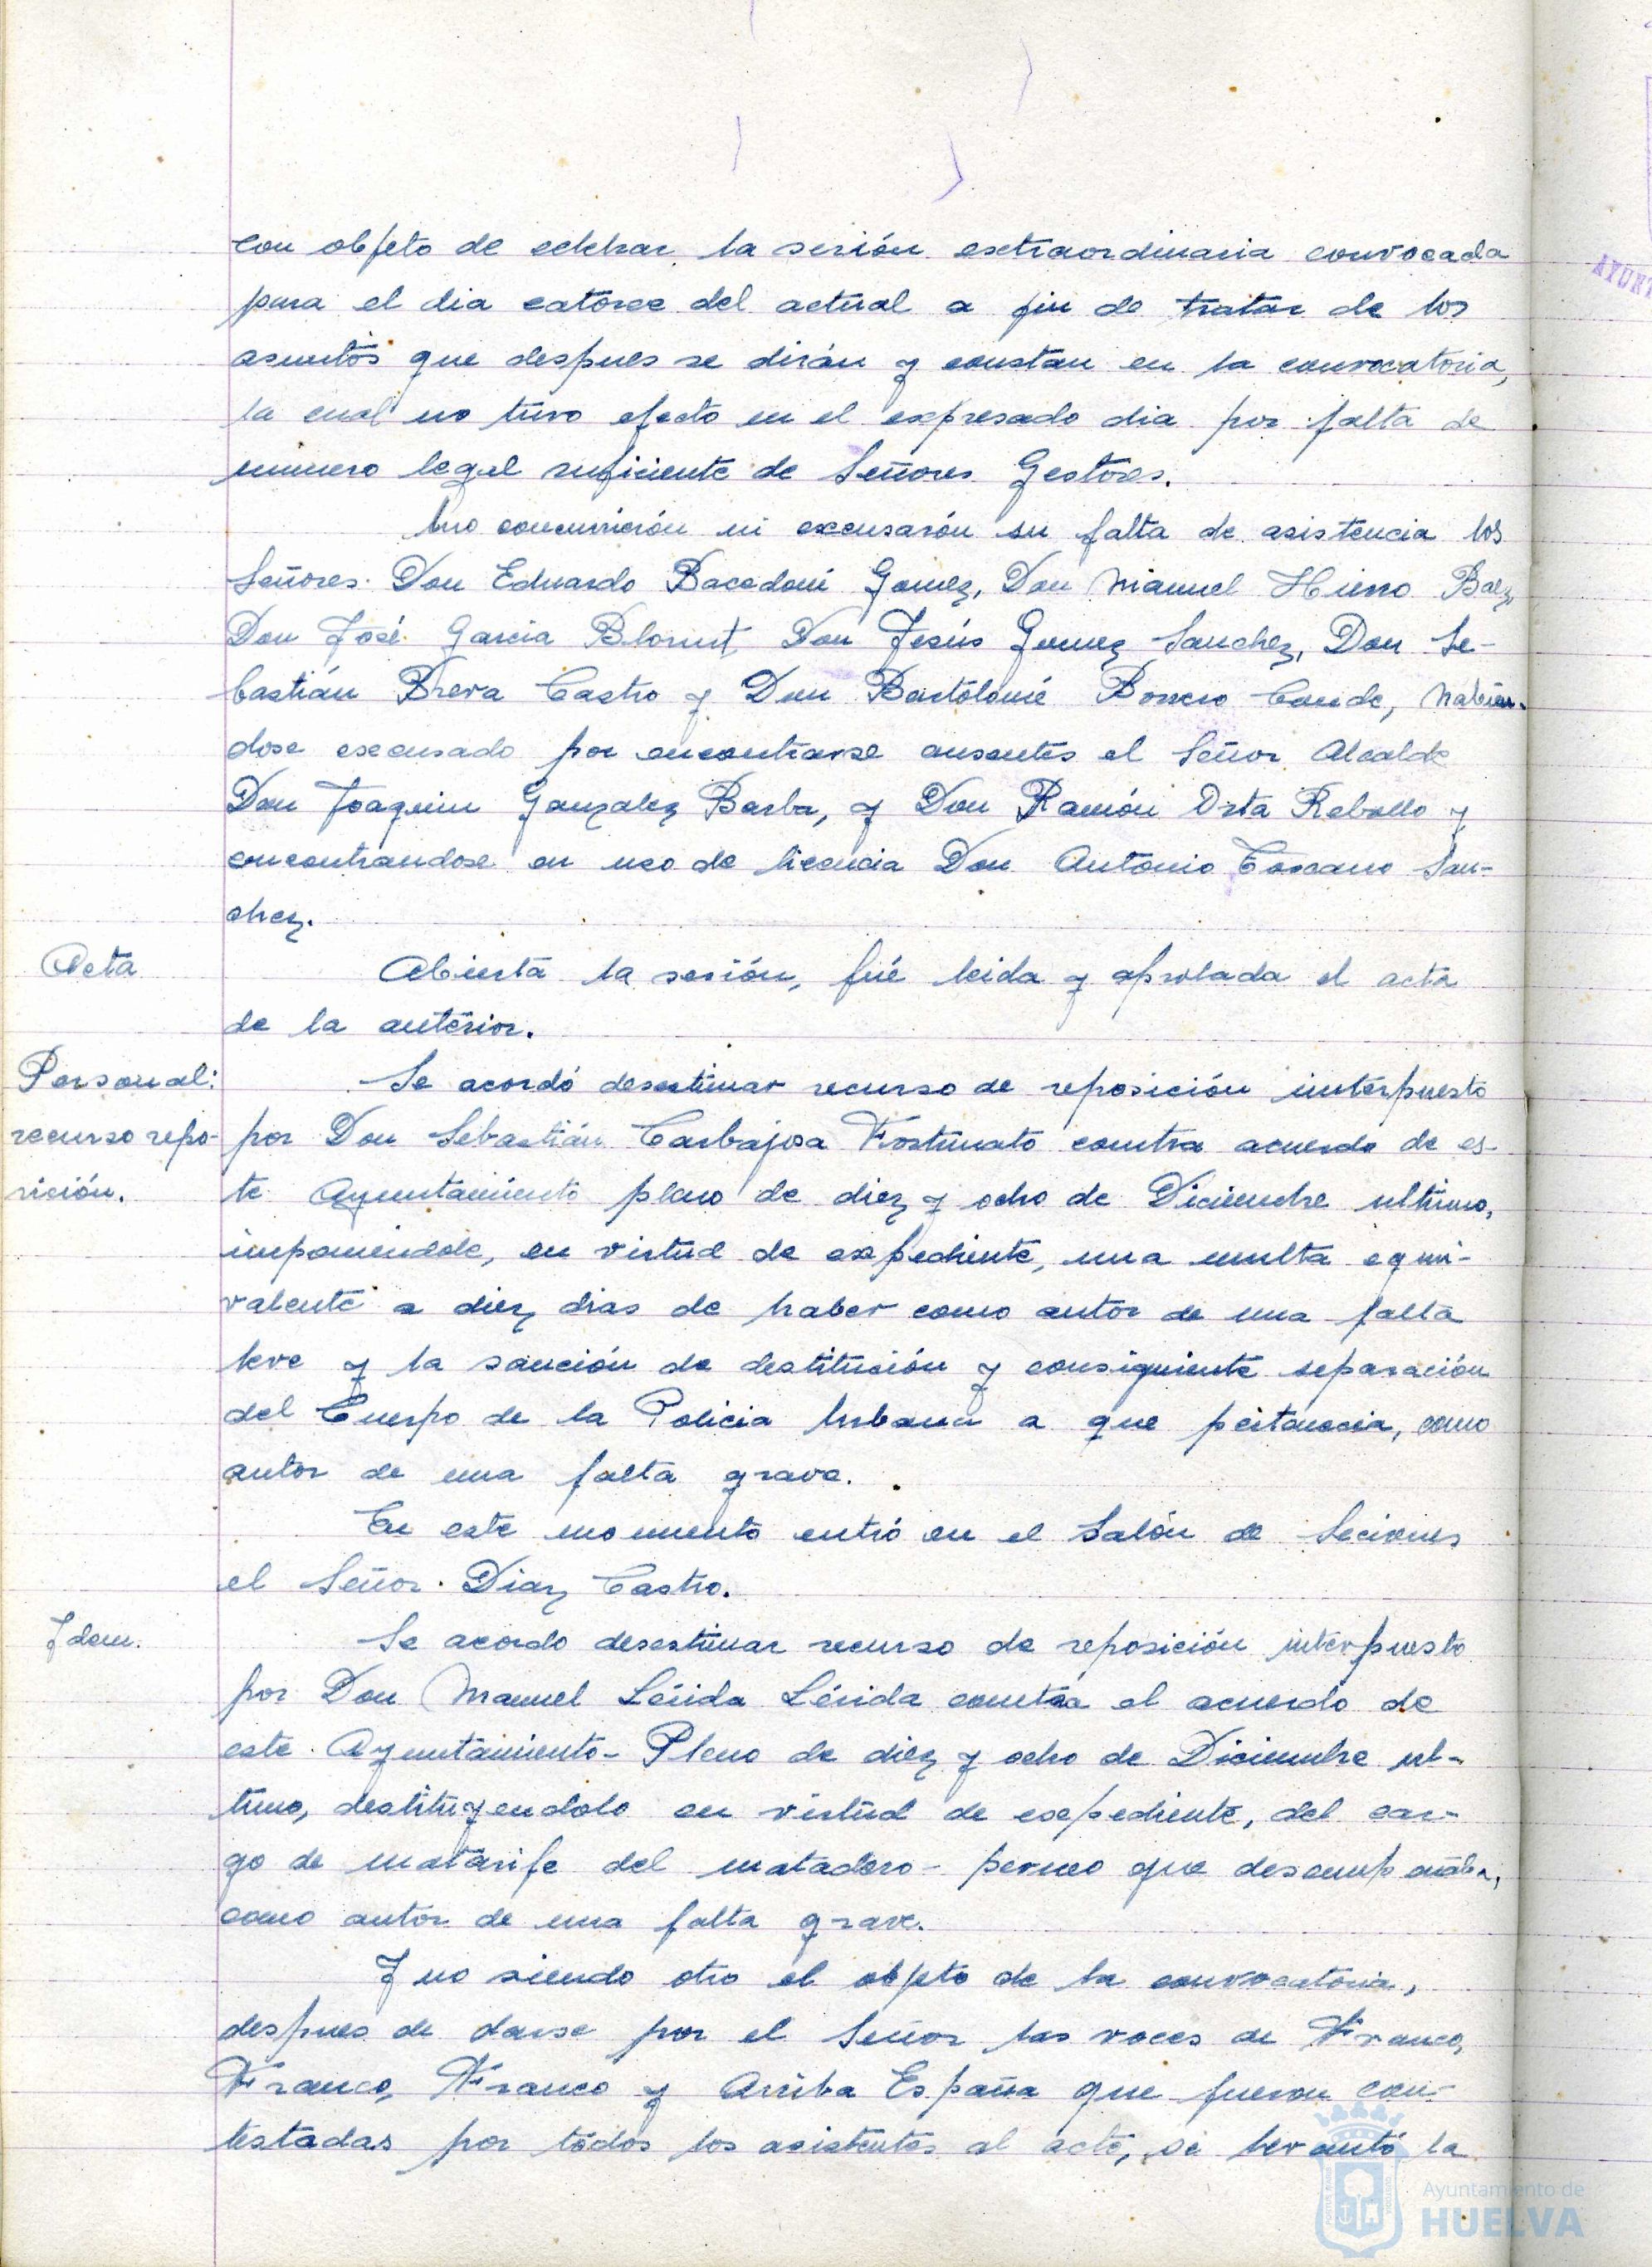 con objeto de celebrar la sesión extraordinaria convocada
para el dia catorce del actual a fin de tratar de los
asuntos que despues se dirán y constan en la convocatoria,
la cual no tuvo efecto en el expresado dia por falta de
numero legal suficiente de Señores Gestores.
No concurrieron ni excusarón su falta de asistencia los
Señores Don Eduardo Gomez, Don Manuel Hierro Baez,
Don José Garcia Don Jesús Gomez Sanchez, Don Se-
bastián Breva Castro y Don Bartolomé Borrero Conde, habien-
dose excusado por encontrarse ausentes el Señor Alcalde
Don Joaquin Gonzalez Barba, y Don Ramón Orta Rebollo y
encontrandose en uso de licencia Don Antonio Toscano San-
chez.
Acta
Abierta la sesión, fué leida y aprobada el acta
de la anterior.
Personal:
recurso repo-
sición.
Se acordó desestimar recurso de reposición interpuesto
por Don Sebastián Carbajosa Fortunato contra acuerdo de es-
te Ayuntamiento pleno de diez y ocho de Diciembre ultimo,
imponiendole, en virtud de expediente, una multa equi-
valente a diez dias de haber como autor de una falta
leve y la sanción de destitución y consiguiente separación
del Cuerpo de la Policia Urbana a que pertenecia, como
autor de una falta grave.
En este momento entró en el Salón de Seciones
el Señor Diaz Castro.
Idem.
Se acordo desestimar recurso de reposición interpuesto
por Don Manuel Lérida Lérida contra el acuerdo de
este Ayuntamiento-Pleno de diez y ocho de Diciembre ul-
timo, destituyendolo en virtud de expediente, del car-
go de matarife del matadero- que desempeñaba,
como autor de una falta grave.
Y no siendo otro el objeto de la convocatoria,
despues de darse por el Señor las voces de Franco,
Franco, Franco y Arriba España que fueron con-
testadas por todos los asistentes al acto, se levantó la
Ayuntamiento de
HUELVA